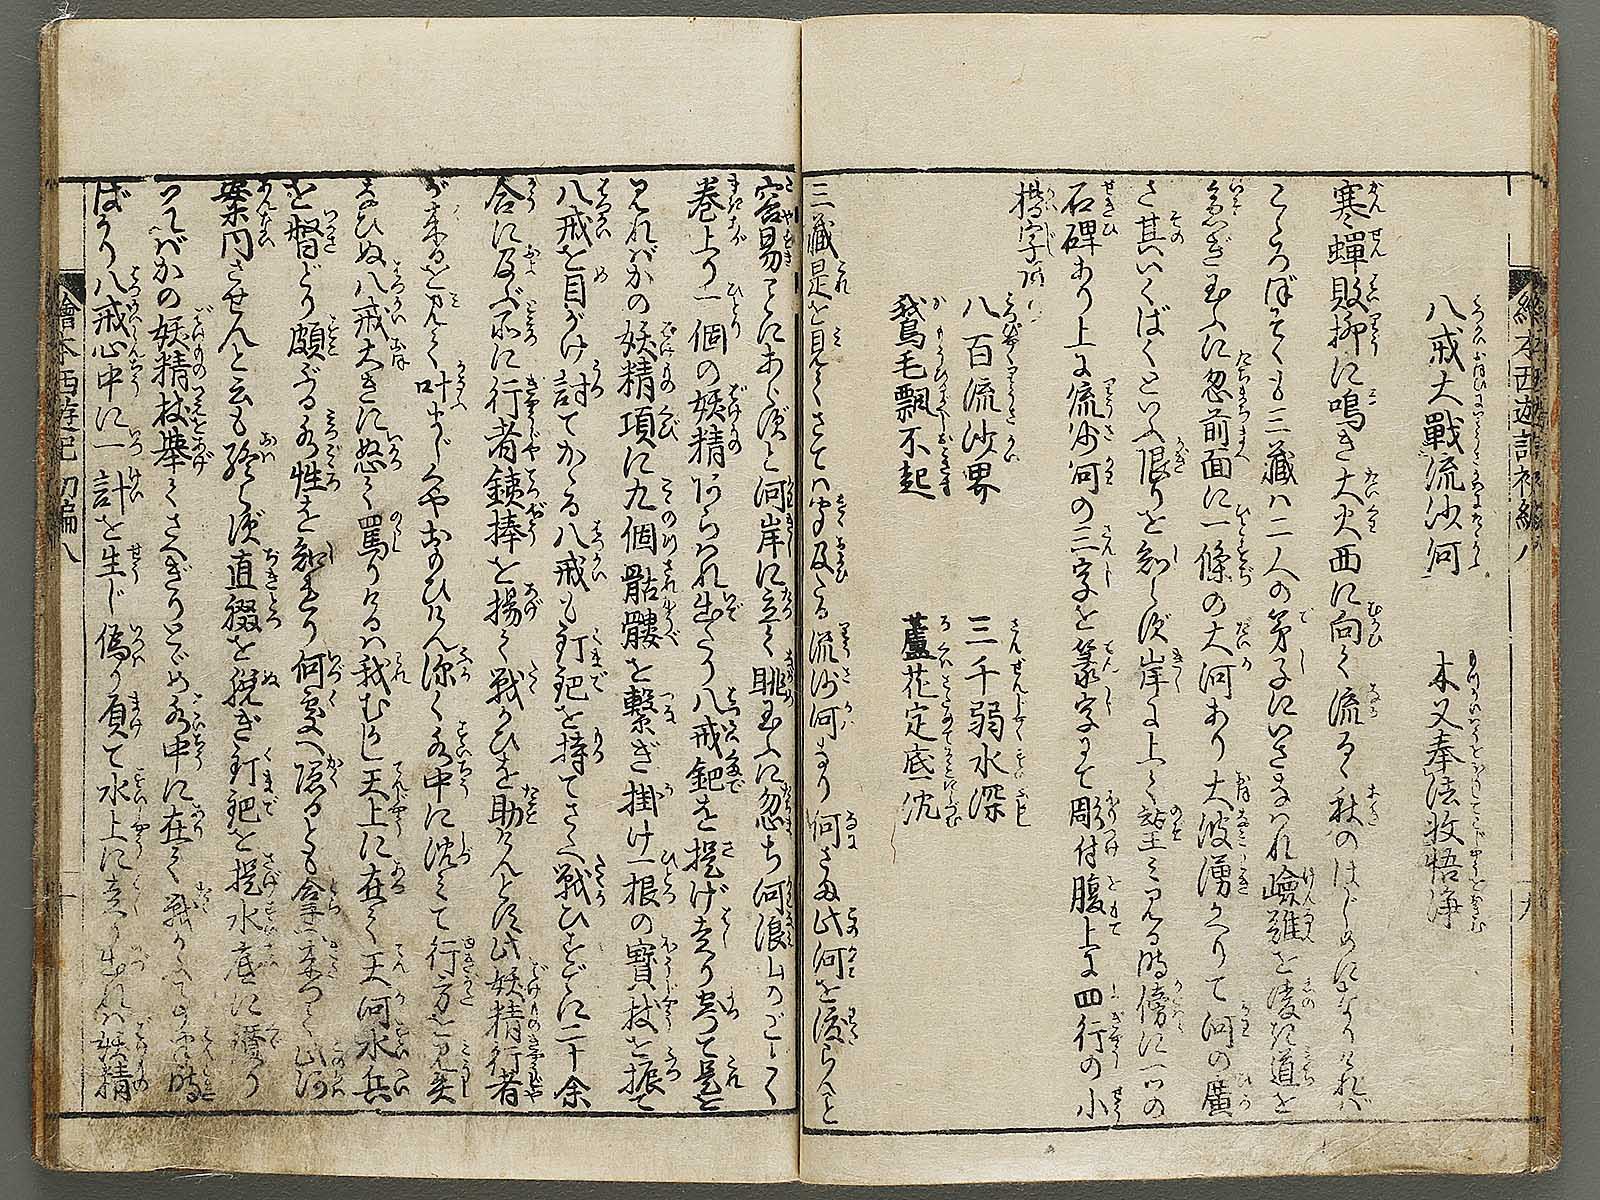 八戒大戰流沙河　木叉奉法收悟淨
寒蟬敗柳に鳴き大火西に向て流るゝ秋のはじめになりければ
こゝろぼそくも三藏ハ二人の弟子にいさなはれ嶮難を凌ぎ道を
急ぎ玉ふに忽前面に一條の大河あり大波湧かへりて河の廣
さ其いくばくといふ限りを知らず岸に上て望ミ見る時傍に一ツの
石碑あり上に流沙河の三字を篆字にて彫付腹上に四行の小
楷字
八百流沙界　三千弱水深
鵞毛飄不起　蘆花定底沈
三藏是を見てさてハ聞及びたる流沙河なり何さま此河を渡らんこと
容易ことにあらずと河岸に立て眺玉ふに忽ち河浪山のごとく
巻上り一個の妖精あらはれ出たり八戒鈀を提げ走り寄て是を
見ればかの妖精項に九個骷髏を繋ぎ掛け一根の寶杖を振て
八戒を目がけ討てかゝる八戒も釘鈀を持てさゝへ戰ひすでに二十余
合に及ぶ所に行者鉄捧を揚て戰ひを助けんとす此妖精行者
が来るを見て叶まじくや思ひけん深く水中に沈ミて行方を見失
なひぬ八戒大きに怒て罵りけるハ我むかし天上に在て天河水兵
を督どり頗ぶる水性を知れり何處へ隠るとも拿へ来つて此河
案内させんと云も終らず直綴を脱ぎ釘鈀を提水底に潜り
入ればかの妖精杖を挙てさへぎりとゞめ水中に在て戰
ばかり八戒心中に一計を生じ偽り負て水上に走り出れハ妖精
繪本西遊記初編八